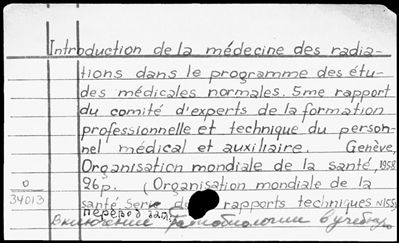 Introduction de la médecine des radia-
tions dans le programme des étu-
des médicales normales. 5me rapport
du comité d'experts de la formation
professionnelle et technique du person-
nel médical et auxiliaire. Genève,
Organisation mondiale de la santé, 1958.
26p. (Organisation mondiale de la
0
34013
santé Serie de rapports techniques N155)
перевод загл.
Включение радиобиологии в учебную